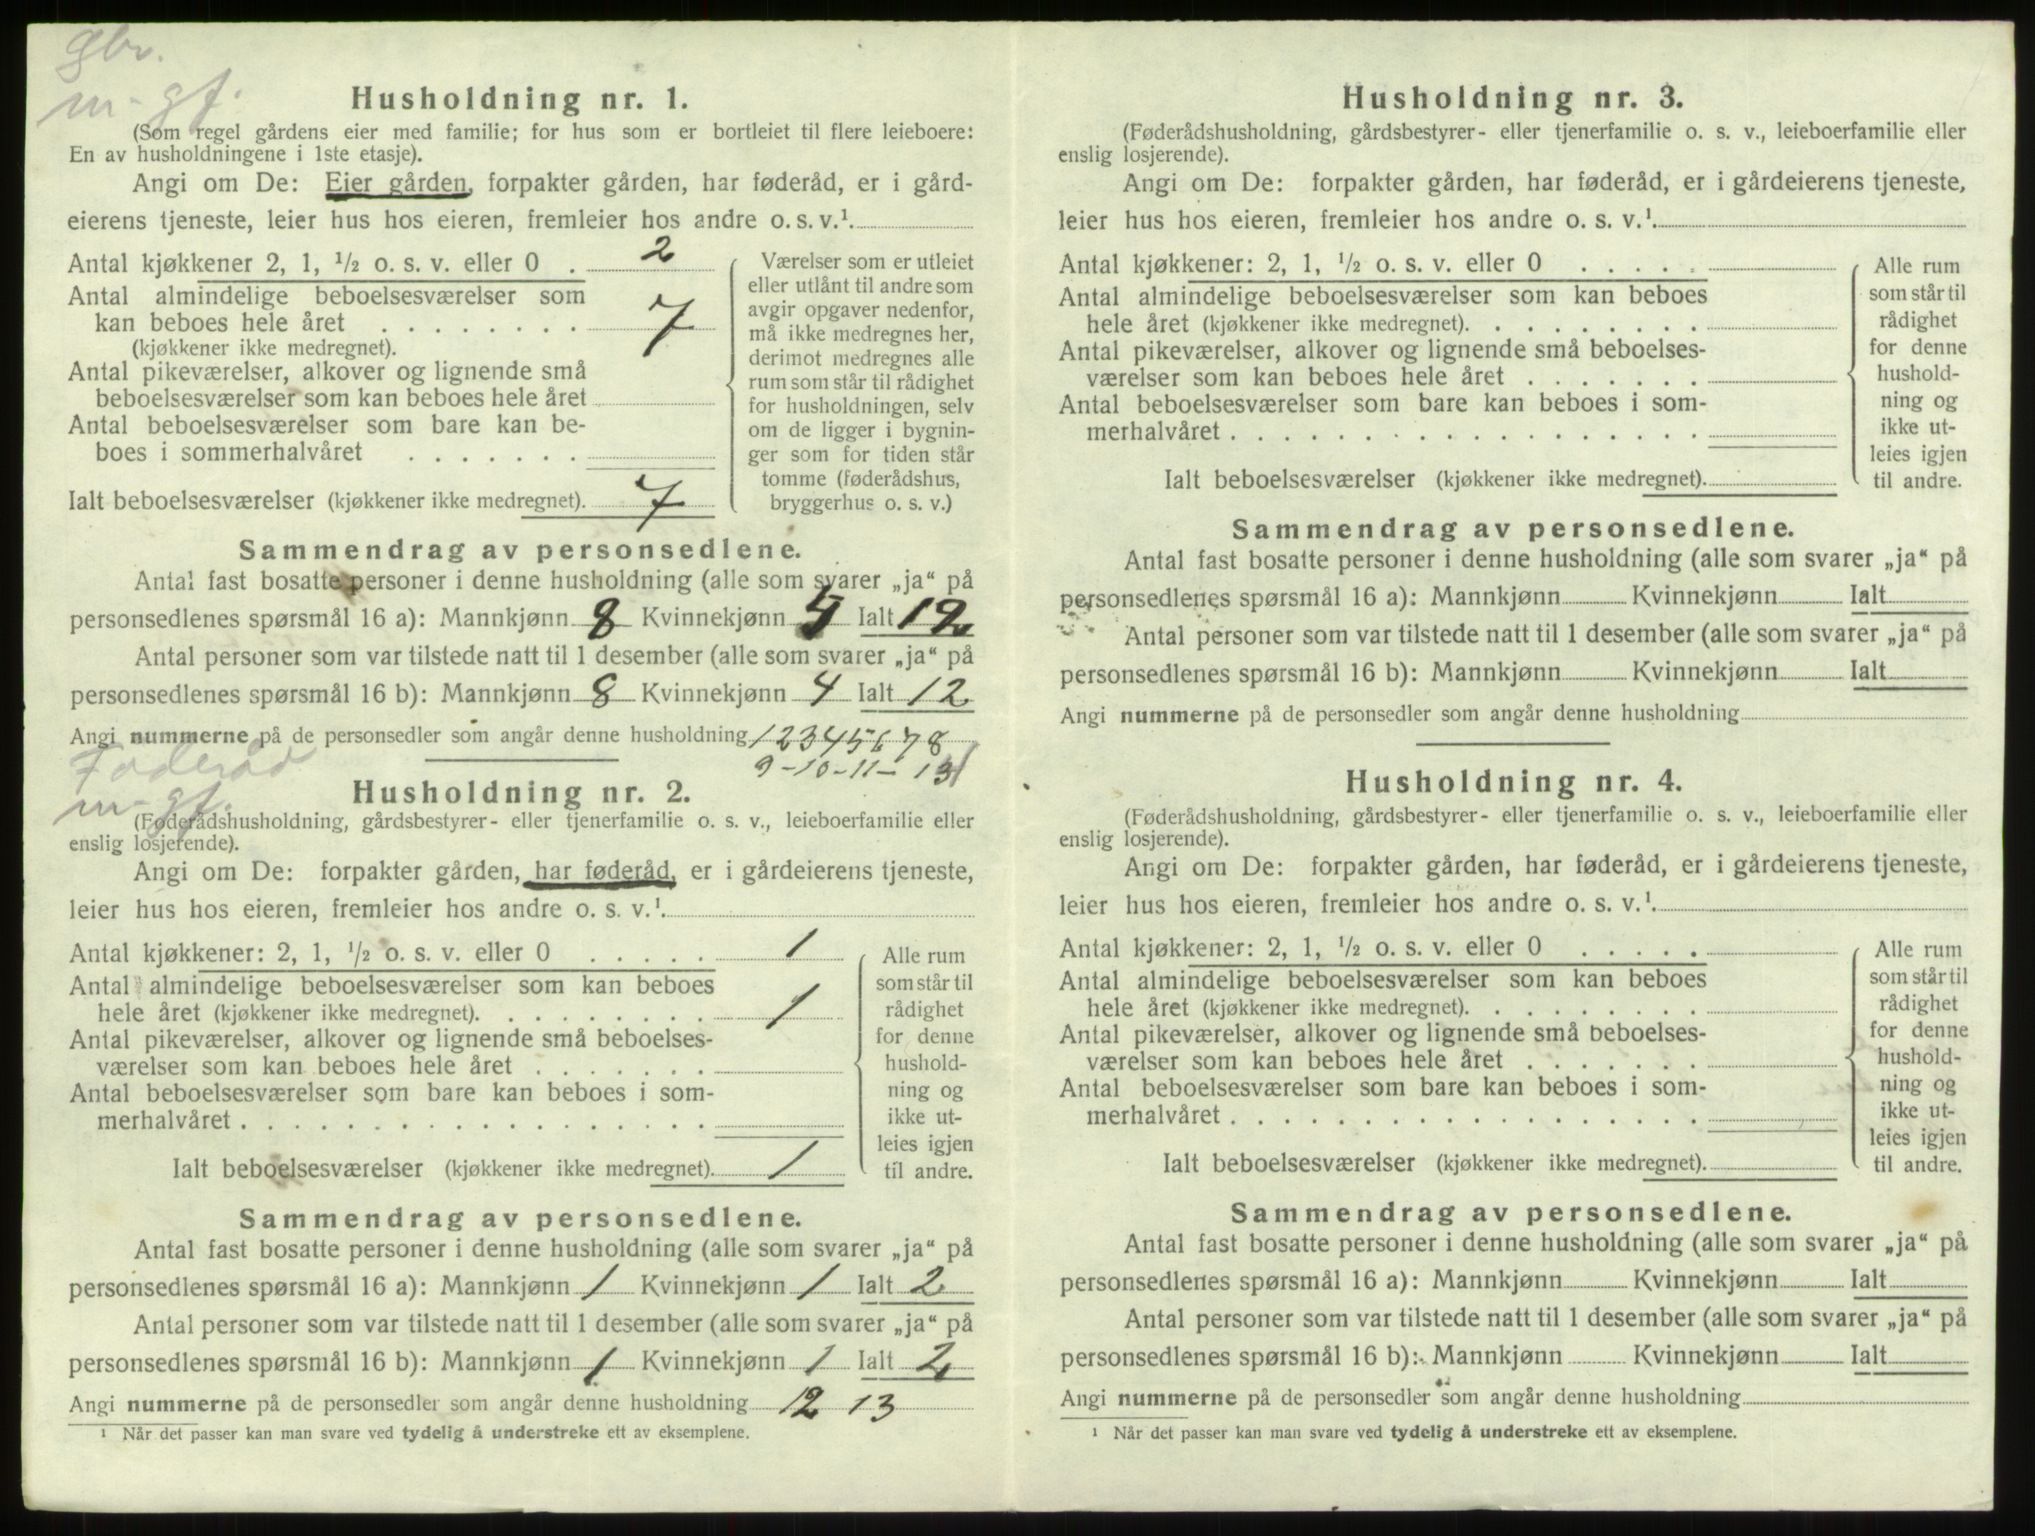 gbr.
m-gf.
Husholdning nr. 1.
(Som regel gårdens eier med familie; for hus som er bortleiet til flere leieboere:
En av husholdningene i 1ste etasje).
Angi om De: Eier gården, forpakter gården, har føderåd, er i gård-
eierens tjeneste, leier hus hos eieren, fremleier hos andre o. s. v.¹
Antal kjøkkener 2, 1, ½ o. s. v. eller 0 . 2
Antal almindelige beboelsesværelser som
kan beboes hele året . . . . . . . . 7
(kjøkkener ikke medregnet).
Antal pikeværelser, alkover og lignende små
beboelsesværelser som kan beboes hele året
Antal beboelsesværelser som bare kan be-
boes i sommerhalvåret . . . . . . .
Ialt beboelsesværelser (kjøkkener ikke medregnet). 7
Værelser som er utleiet
eller utlånt til andre som
avgir opgaver nedenfor,
må ikke medregnes her,
derimot medregnes alle
rum som står til rådighet
for husholdningen, selv
om de ligger i bygnin-
ger som for tiden står
tomme (føderådshus,
bryggerhus o. s. v.)
Sammendrag av personsedlene.
Antal fast bosatte personer i denne husholdning (alle som svarer „ja“ på
personsedlenes spørsmål 16 a): Mannkjønn 8 Kvinnekjønn Ialt 12
Antal personer som var tilstede natt til 1 desember (alle som svarer „ja“ på
personsedlenes spørsmål 16 b): Mannkjønn 8 Kvinnekjønn 4 Ialt 12
Angi nummerne på de personsedler som angår denne husholdning 1 2 3 4 5 6 7 8
9-10-11-
Føderåd
m-gf.
Husholdning nr. 2.
(Føderådshusholdning, gårdsbestyrer- eller tjenerfamilie o. s. v., leieboerfamilie eller
enslig losjerende).
Angi om De: forpakter gården, har føderåd, er i gårdeierens tjeneste,
leier hus hos eieren, fremleier hos andre o. s. v.¹
Antal kjøkkener: 2, 1, ½ o. s. v. eller 0 . . . . . 1
Antal almindelige beboelsesværelser som kan beboes
hele året (kjøkkener ikke medregnet). . . . . . . . . 1
Antal pikeværelser, alkover og lignende små beboelses-
værelser som kan beboes hele året . . . . . . .
Antal beboelsesværelser som bare kan beboes i som-
merhalvåret . . . . . . . . . . . . . . . . . .
Ialt beboelsesværelser (kjøkkener ikke medregnet). 1
Alle rum
som står til
rådighet
for denne
hushold-
ning og
ikke ut-
leies igjen
til andre.
Sammendrag av personsedlene.
Antal fast bosatte personer i denne husholdning (alle som svarer „ja“ på
personsedlenes spørsmål 16 a): Mannkjønn 1 Kvinnekjønn 1 Ialt 2
Antal personer som var tilstede natt til 1 desember (alle som svarer „ja“ på
personsedlenes spørsmål 16 b): Mannkjønn 1 Kvinnekjønn 1 Ialt 2
Angi nummerne på de personsedler som angår denne husholdning 12 13
¹ Når det passer kan man svare ved tydelig å understreke ett av eksemplene.
Husholdning nr. 3.
(Føderådshusholdning, gårdsbestyrer- eller tjenerfamilie o. s. v., leieboerfamilie eller
enslig losjerende).
Angi om De: forpakter gården, har føderåd, er i gårdeierens tjeneste,
leier hus hos eieren, fremleier hos andre o. s. v.¹
Antal kjøkkener: 2, 1, ½ o. s. v. eller 0 . . . . .
Antal almindelige beboelsesværelser som kan beboes
hele året (kjøkkener ikke medregnet). . . . . . . . .
Antal pikeværelser, alkover og lignende små beboelses-
værelser som kan beboes hele året . . . . . . .
Antal beboelsesværelser som bare kan beboes i som-
merhalvåret . . . . . . . . . . . . . . . . . .
Ialt beboelsesværelser (kjøkkener ikke medregnet).
Alle rum
som står til
rådighet
for denne
hushold-
ning og
ikke ut-
leies igjen
til andre.
Sammendrag av personsedlene.
Antal fast bosatte personer i denne husholdning (alle som svarer „ja“ på
personsedlenes spørsmål 16 a): Mannkjønn Kvinnekjønn Ialt
Antal personer som var tilstede natt til 1 desember (alle som svarer „ja“ på
personsedlenes spørsmål 16 b): Mannkjønn Kvinnekjønn Ialt
Angi nummerne på de personsedler som angår denne husholdning
Husholdning nr. 4.
(Føderådshusholdning, gårdsbestyrer- eller tjenerfamilie o. s. v., leieboerfamilie eller
enslig losjerende).
Angi om De: forpakter gården, har føderåd, er i gårdeierens tjeneste,
leier hus hos eieren, fremleier hos andre o. s. v.¹
Antal kjøkkener: 2, 1, ½ o. s. v. eller 0 . . . . .
Antal almindelige beboelsesværelser som kan beboes
hele året (kjøkkener ikke medregnet). . . . . . . . .
Antal pikeværelser, alkover og lignende små beboelses-
værelser som kan beboes hele året . . . . . . .
Antal beboelsesværelser som bare kan beboes i som-
merhalvåret . . . . . . . . . . . . . . . . . .
Ialt beboelsesværelser (kjøkkener ikke medregnet).
Alle rum
som står til
rådighet
for denne
hushold-
ning og
ikke ut-
leies igjen
til andre.
Sammendrag av personsedlene.
Antal fast bosatte personer i denne husholdning (alle som svarer „ja“ på
personsedlenes spørsmål 16 a): Mannkjønn Kvinnekjønn Ialt
Antal personer som var tilstede natt til 1 desember (alle som svarer „ja“ på
personsedlenes spørsmål 16 b): Mannkjønn Kvinnekjønn Ialt
Angi nummerne på de personsedler som angår denne husholdning
¹ Når det passer kan man svare ved tydelig å understreke ett av eksemplene.